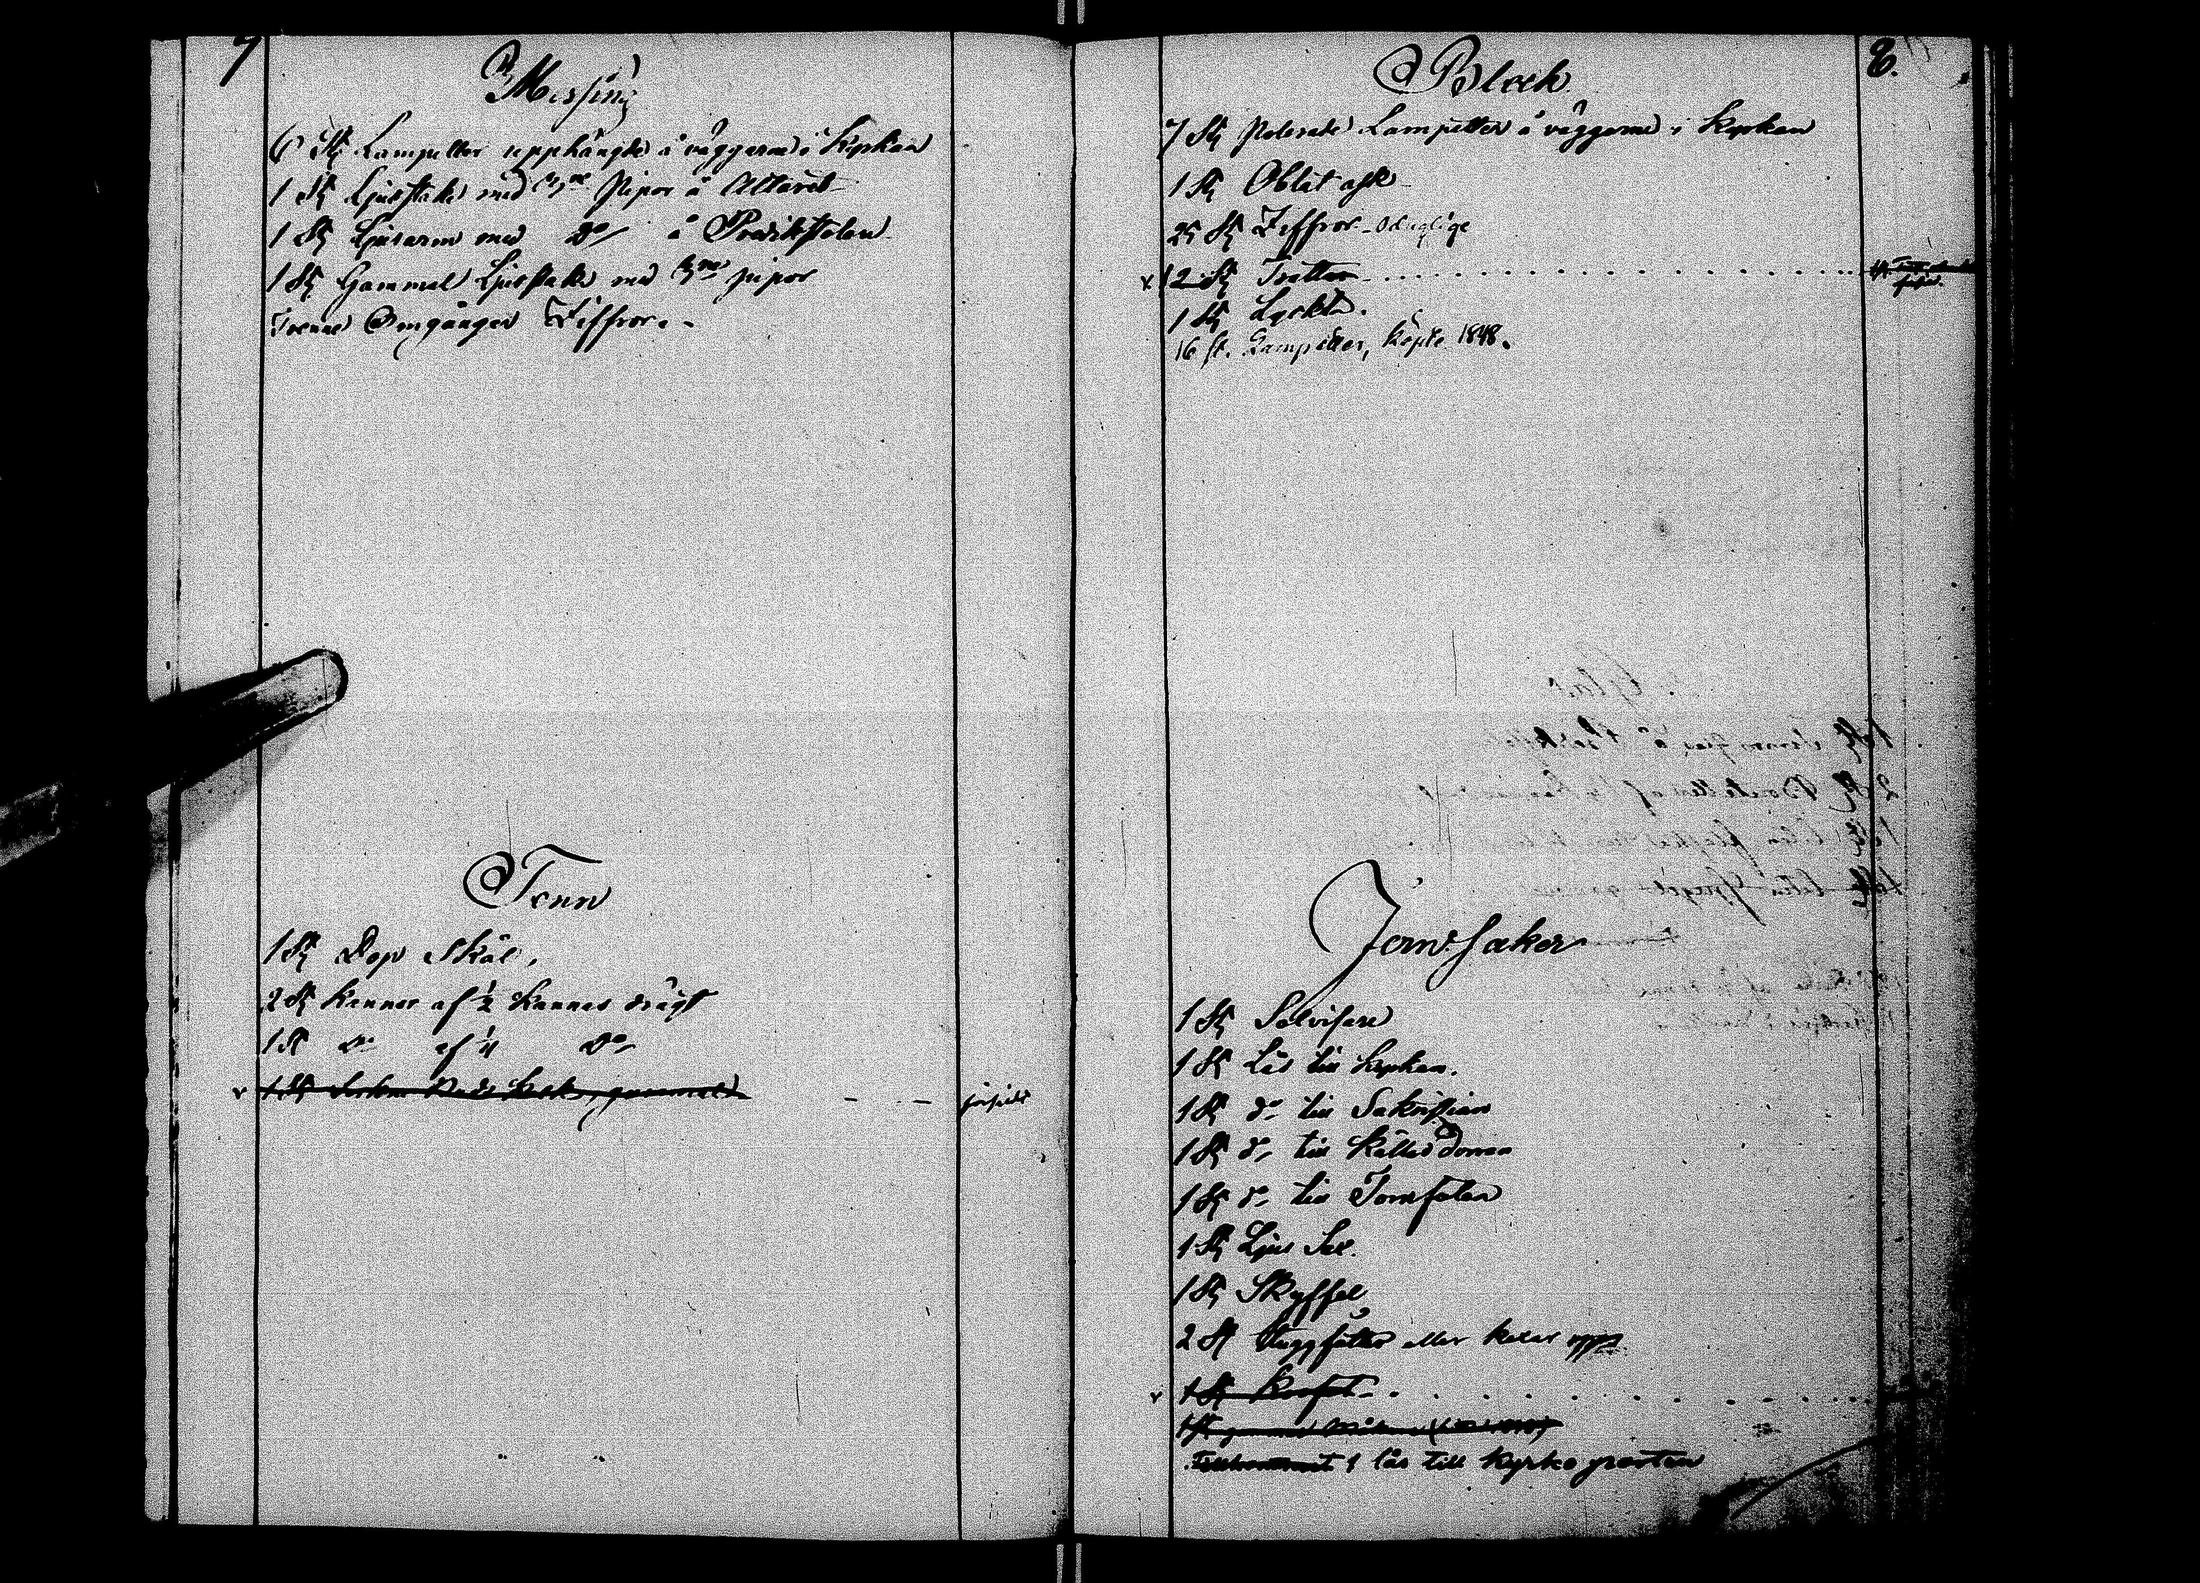 7
Messing
6 St Lampetter upphängde å väggarne i Kyrkan
1 St Ljusstake med pipor å Altaret
1 St Ljusarm med Do å Predikstolen
1 St Gammal Ljusstake med pipor
Trenne Omgångar Ziffror.
Tenn
1 St Dop Skål,
2 St Kannor af ½ Kannas drägt
1 St do af ¼ Do
1 St gammal
8.
Bleck
7 St Polerade Lampetter å väggarne i Kyrkan
1 St Oblat ask
25 St Ziffror oduglige
2 St Trattar
1 St Lyckta.
16 st. Lampetter, köpte 1848.
Jern saker
1 St Solvisare
1 St Lås till Kyrkan.
1 St do till Sakristian
1 St do till
1 St do till
1 St Ljus Sax.
1 St Skyffel
2 St eller
1 St Korset
1 St gammal
Tillkommit 1 lås till Kyrko porten